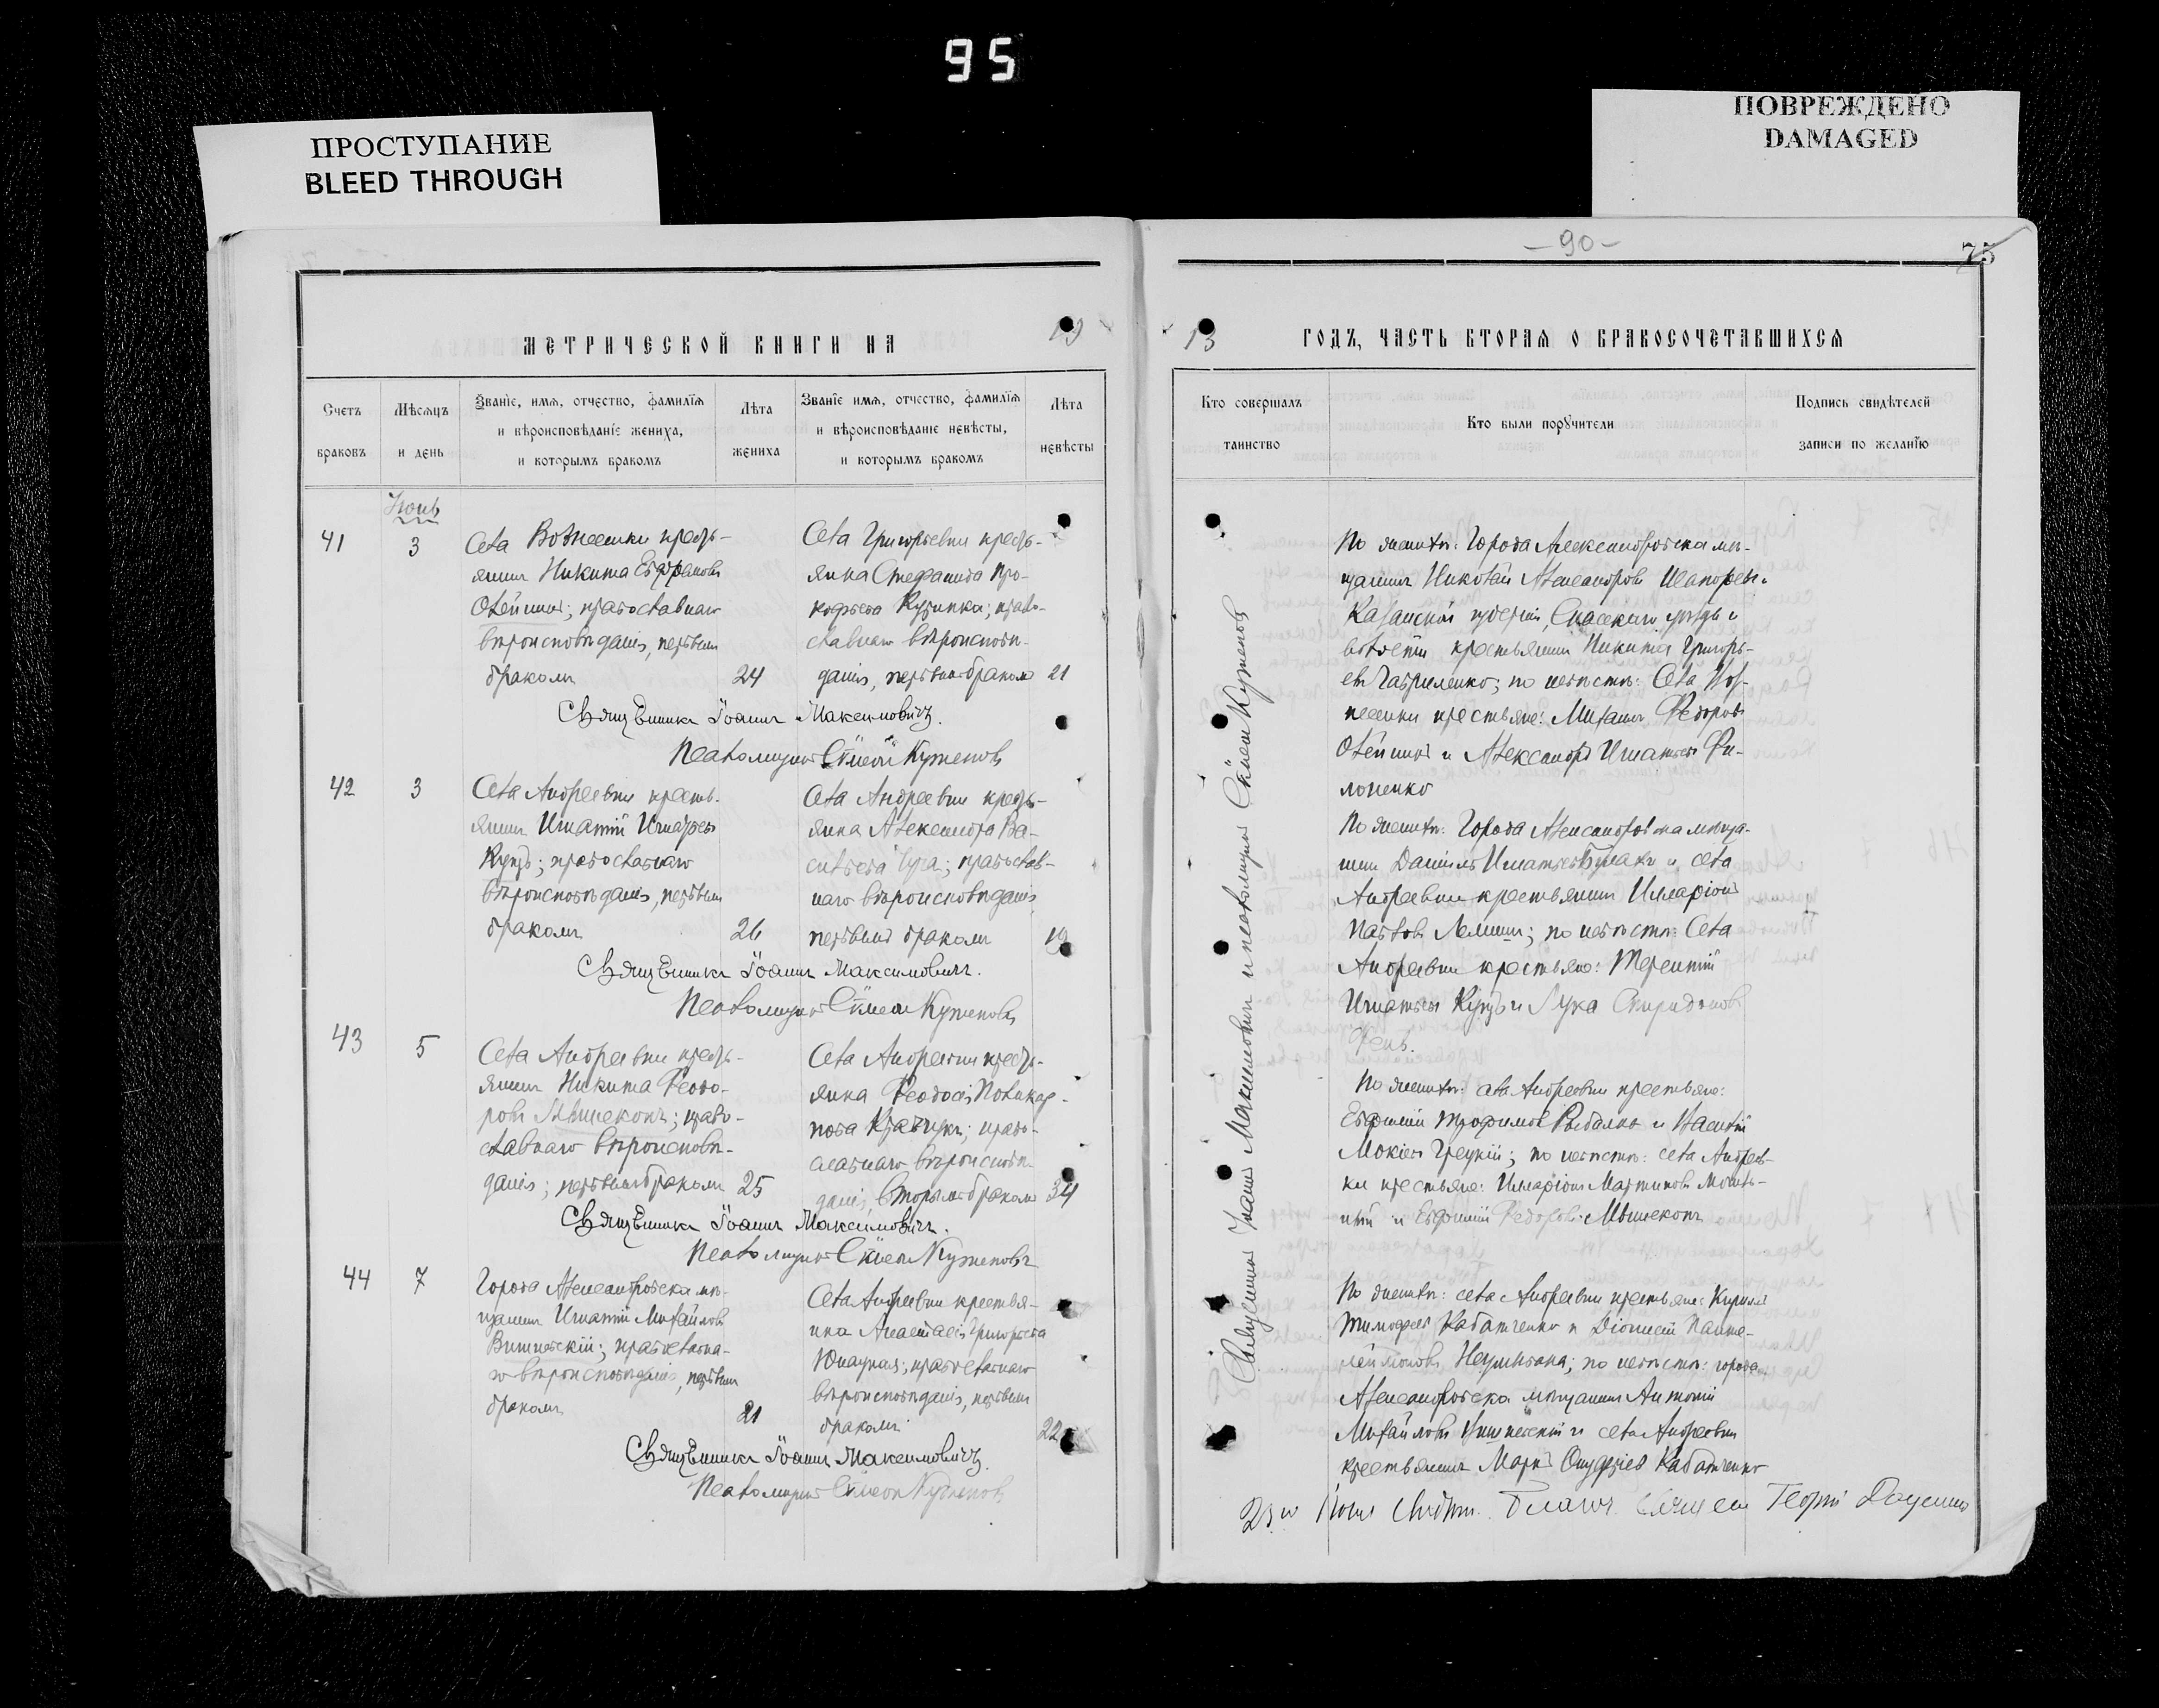 95
ПРОСТУПАНИЕ
BLEED THROUGH
ПОВРЕЖДЕНО
DAMAGED
— 90 —
75
МЕТРИЧЕСКОЙ КНИГИ НА 19
13 ГОДЪ, ЧАСТЬ ВТОРАѦ О БРАКОСОЧЕТАВШИХСѦ
Счетъ
браковъ
Мѣсѧцъ
и день
Званїе, имѧ, отчество, фамилїѧ
и вѣроисповѣданїе жениха,
и которымъ бракомъ
Лѣта
жениха
Званїе имѧ, отчество, фамилїѧ
и вѣроисповѣданїе невѣсты,
и которымъ бракомъ
Лѣта
невѣсты
Кто совершалъ
таинство
Кто были порꙋчители
Подпись свидѣтелей
записи по желанїю
41
3
Села Вознесенки кресть-
янинъ Никита
православнаго
вѣроисповѣданія, первымъ
бракомъ
24
Села Григорьевки кресть-
янка Стефанида Про-
кофьева Куринка; право-
славнаго вѣроисповѣ-
данія, первымъ бракомъ 21
Священникъ Іоаннъ Максимовичъ.
Псаломщикъ Сѵмеонъ Куженовъ
42
3
Села Андреевки кресть-
янинъ Игнатій Игнатьевъ
православнаго
вѣроисповѣданія, первымъ
бракомъ
26
Села Андреевки кресть-
янка Александра Ва-
сильева православ-
наго вѣроисповѣданія
первымъ бракомъ 19
Священникъ Іоаннъ Максимовичъ.
Псаломщикъ Сѵмеонъ Куженовъ
43
5
Села Андреевки кресть-
янинъ Никита Ѳеодо-
ровъ Мышеконъ; право-
славнаго вѣроисповѣ-
данія; первымъ бракомъ 25
Села Андреевки кресть-
янка Ѳеодосія Поликар-
пова Кравчукъ; право-
славнаго вѣроисповѣ-
данія, вторымъ бракомъ 34
Священникъ Іоаннъ Максимовичъ.
Псаломщикъ Сѵмеонъ Куженовъ
44
7
Города Александровска мѣ-
щанинъ Игнатій Михайловъ
Вишневскій; православна-
го вѣроисповѣданія, первымъ
бракомъ
21
Села Андреевки крестья-
нка Анастасія Григорьева
православнаго
вѣроисповѣданія, первымъ
бракомъ
22
Священникъ Іоаннъ Максимовичъ.
Псаломщикъ Сѵмеонъ Куженовъ
Священникъ Іоаннъ Максимовичъ и псаломщикъ Сѵмеонъ Куженовъ
По женихѣ: Города Александровска мѣ-
щанинъ Николай Александровъ и
Казанской губерніи, Спасскаго уѣзда и
волости крестьянинъ Никита Григорь-
евъ Гавриленко; по невѣстѣ: Села Воз-
несенки крестьяне: Михаилъ Ѳедоровъ
и Александръ Игнатьевъ Фи-
лоненко
По женихѣ: Города Александровска мѣща-
нинъ Даніилъ Игнатьевъ и села
Андреевки крестьянинъ Иларіонъ
Павловъ по невѣстѣ: Села
Андреевки крестьяне: Терентій
Игнатьевъ и Лука Спиридоновъ
По женихѣ: села Андреевки крестьяне:
Евфимій Трофимовъ Рыбалко и Василій
Мокіевъ Грецкій; по невѣстѣ: села Андреев-
ки крестьяне: Иларіонъ Мартиновъ
и Евфимій Ѳедоровъ Мышеконъ
По женихѣ: села Андреевки крестьяне: Кириллъ
Тимофеевъ Кабатченко и Діонисій Панте-
леймоновъ по невѣстѣ: города
Александровска мѣщанинъ Антоній
Михайловъ Вишневскій и села Андреевки
крестьянинъ Маркъ Онуфріевъ Кабатченко